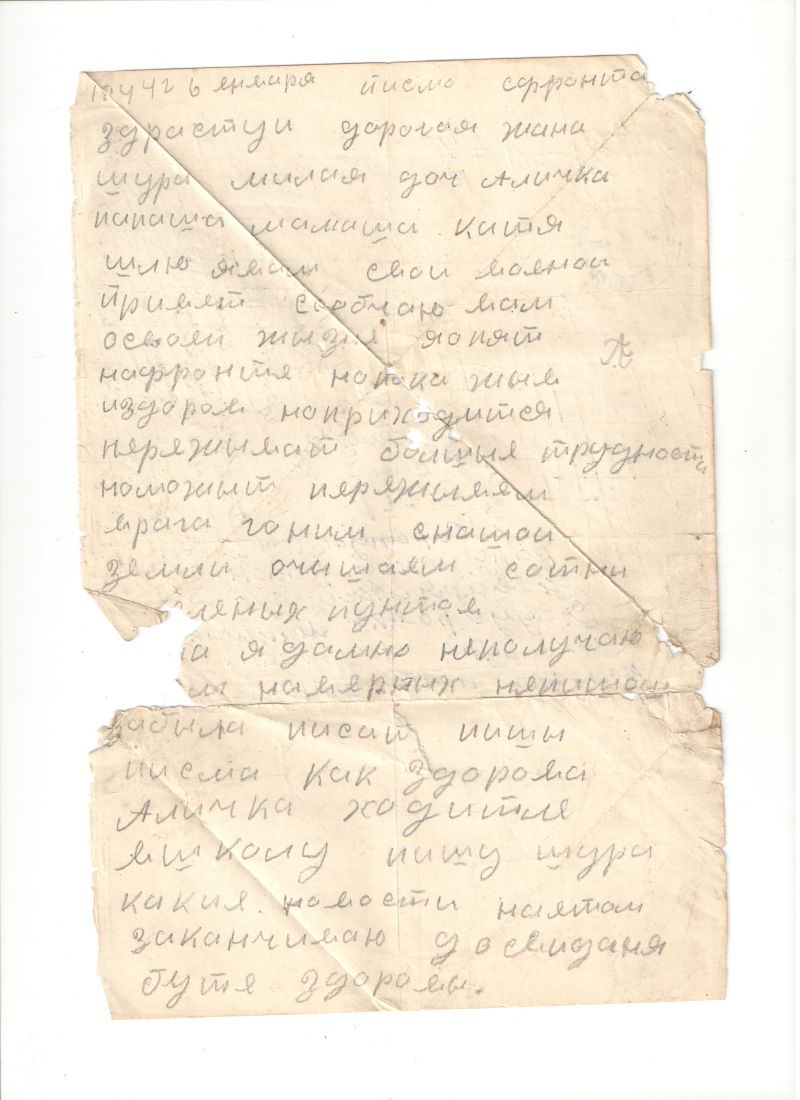 1944г 6 января писмо сфронта
здрастуи дорогая жана
шура милая доч Аличка
папаша мамаша Катя
шлю явам свои военои
привет сообчаю вам
освоеи жызня яопят
нафронтя нопока жыв
издоров ноприходится
пержыват болшия трудности
номожыт перяжывем
врага гоним снашои
земли очишаем сотни
леных пунктов
ма я давно неполучаю
навярных няпишош
забыла писат пишы
писма как здорова
Аличка ходитля
вшколу пишу шура
какия новости наятам
заканчиваю досвиданя
бутя здоровы.